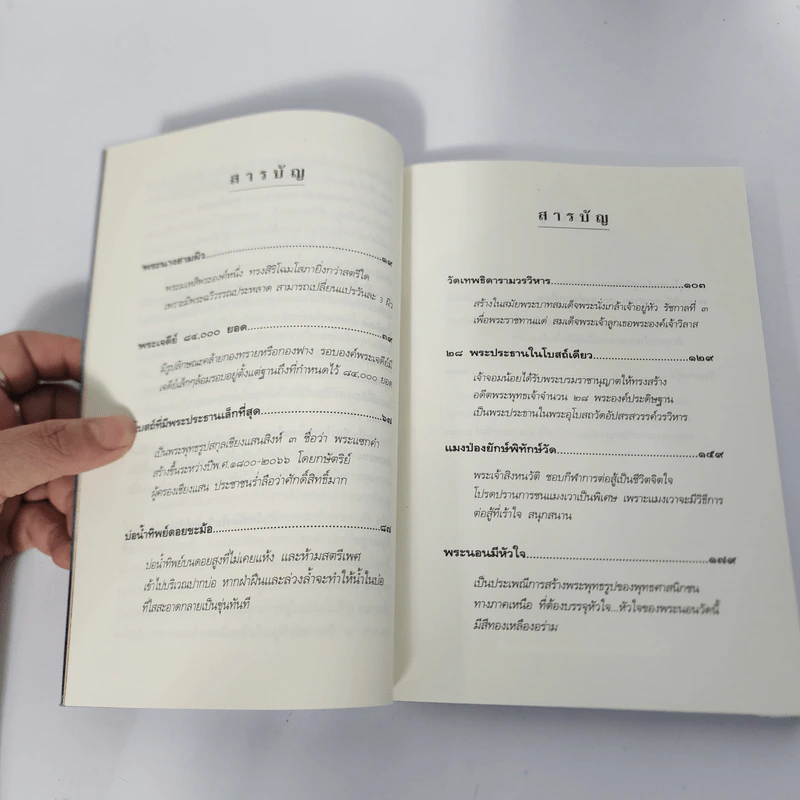 สารบัญ
พระนางสามผิว...............................................๑๙
พระมเหสีพระองค์หนึ่ง ทรงสิริโฉมโสภายิ่งกว่าสตรีใด
เพราะมีพระฉวีวรรณประหลาด สามารถเปลี่ยนแปรวันละ 3 ผิว
พระเจดีย์ ๘๔,๐๐๐ ยอด...................................๓๙
มีรูปลักษณะคล้ายกองทรายหรือกองฟาง รอบองค์พระเจดีย์มี
เจดีย์เล็กๆล้อมรอบอยู่ตั้งแต่ฐานถึงที่กำหนดไว้ ๘๔,๐๐๐ ยอด
โบสถ์ที่มีพระประธานเล็กที่สุด..............................๖๗
เป็นพระพุทธรูปสกุลเชียงแสนสิงห์ ๓ ชื่อว่า พระแซกคำ
สร้างขึ้นระหว่างปีพ.ศ.๑๘๐๐-๒๐๖๖ โดยกษัตริย์
ผู้ครองเชียงแสน ประชาชนร่ำลือว่าศักดิ์สิทธิ์มาก
บ่อน้ำทิพย์ดอยขะม้อ.......................................๘๗
บ่อน้ำทิพย์บนดอยสูงที่ไม่เคยแห้ง และห้ามสตรีเพศ
เข้าไปบริเวณปากบ่อ หากฝ่าฝืนและล่วงล้ำจะทำให้น้ำในบ่อ
ที่ใสสะอาดกลายเป็นขุ่นทันที
สารบัญ
วัดเทพธิดารามวรวิหาร...................................๑๐๓
สร้างในสมัยพระบาทสมเด็จพระนั่งเกล้าเจ้าอยู่หัว รัชกาลที่ ๓
เพื่อพระราชทานแต่ สมเด็จพระเจ้าลูกเธอพระองค์เจ้าวิลาส
๒๘ พระประธานในโบสถ์เดียว...........................๑๒๙
เจ้าจอมน้อยได้รับพระบรมราชานุญาตให้ทรงสร้าง
อดีตพระพุทธเจ้าจำนวน ๒๘ พระองค์ประดิษฐาน
เป็นพระประธานในพระอุโบสถวัดอัปสรสวรรค์วรวิหาร
แมงป่องยักษ์พิทักษ์วัด....................................๑๕๙
พระเจ้าสิงหนวัติ ชอบกีฬาการต่อสู้เป็นชีวิตจิตใจ
โปรดปรานการชนแมงเวาเป็นพิเศษ เพราะแมงเวาจะมีวิธีการ
ต่อสู้ที่เร้าใจ สนุกสนาน
พระนอนมีหัวใจ............................................๑๗๙
เป็นประเพณีการสร้างพระพุทธรูปของพุทธศาสนิกชน
ทางภาคเหนือ ที่ต้องบรรจุหัวใจ...หัวใจของพระนอนวัดนี้
มีสีทองเหลืองอร่าม